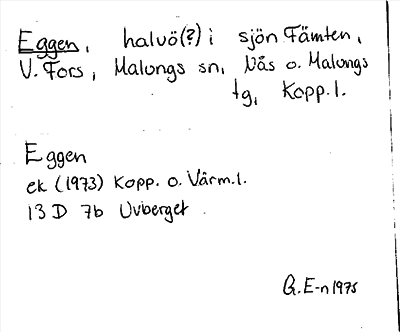 Eggen, halvö(?) i sjön Fämten,
V. Fors, Malungs sn, Nås o. Malungs
tg, Kopp.l.
Eggen
ek (1973) Kopp. o. Värm.l.
13 D 7b Uvberget
G.E-n 1975